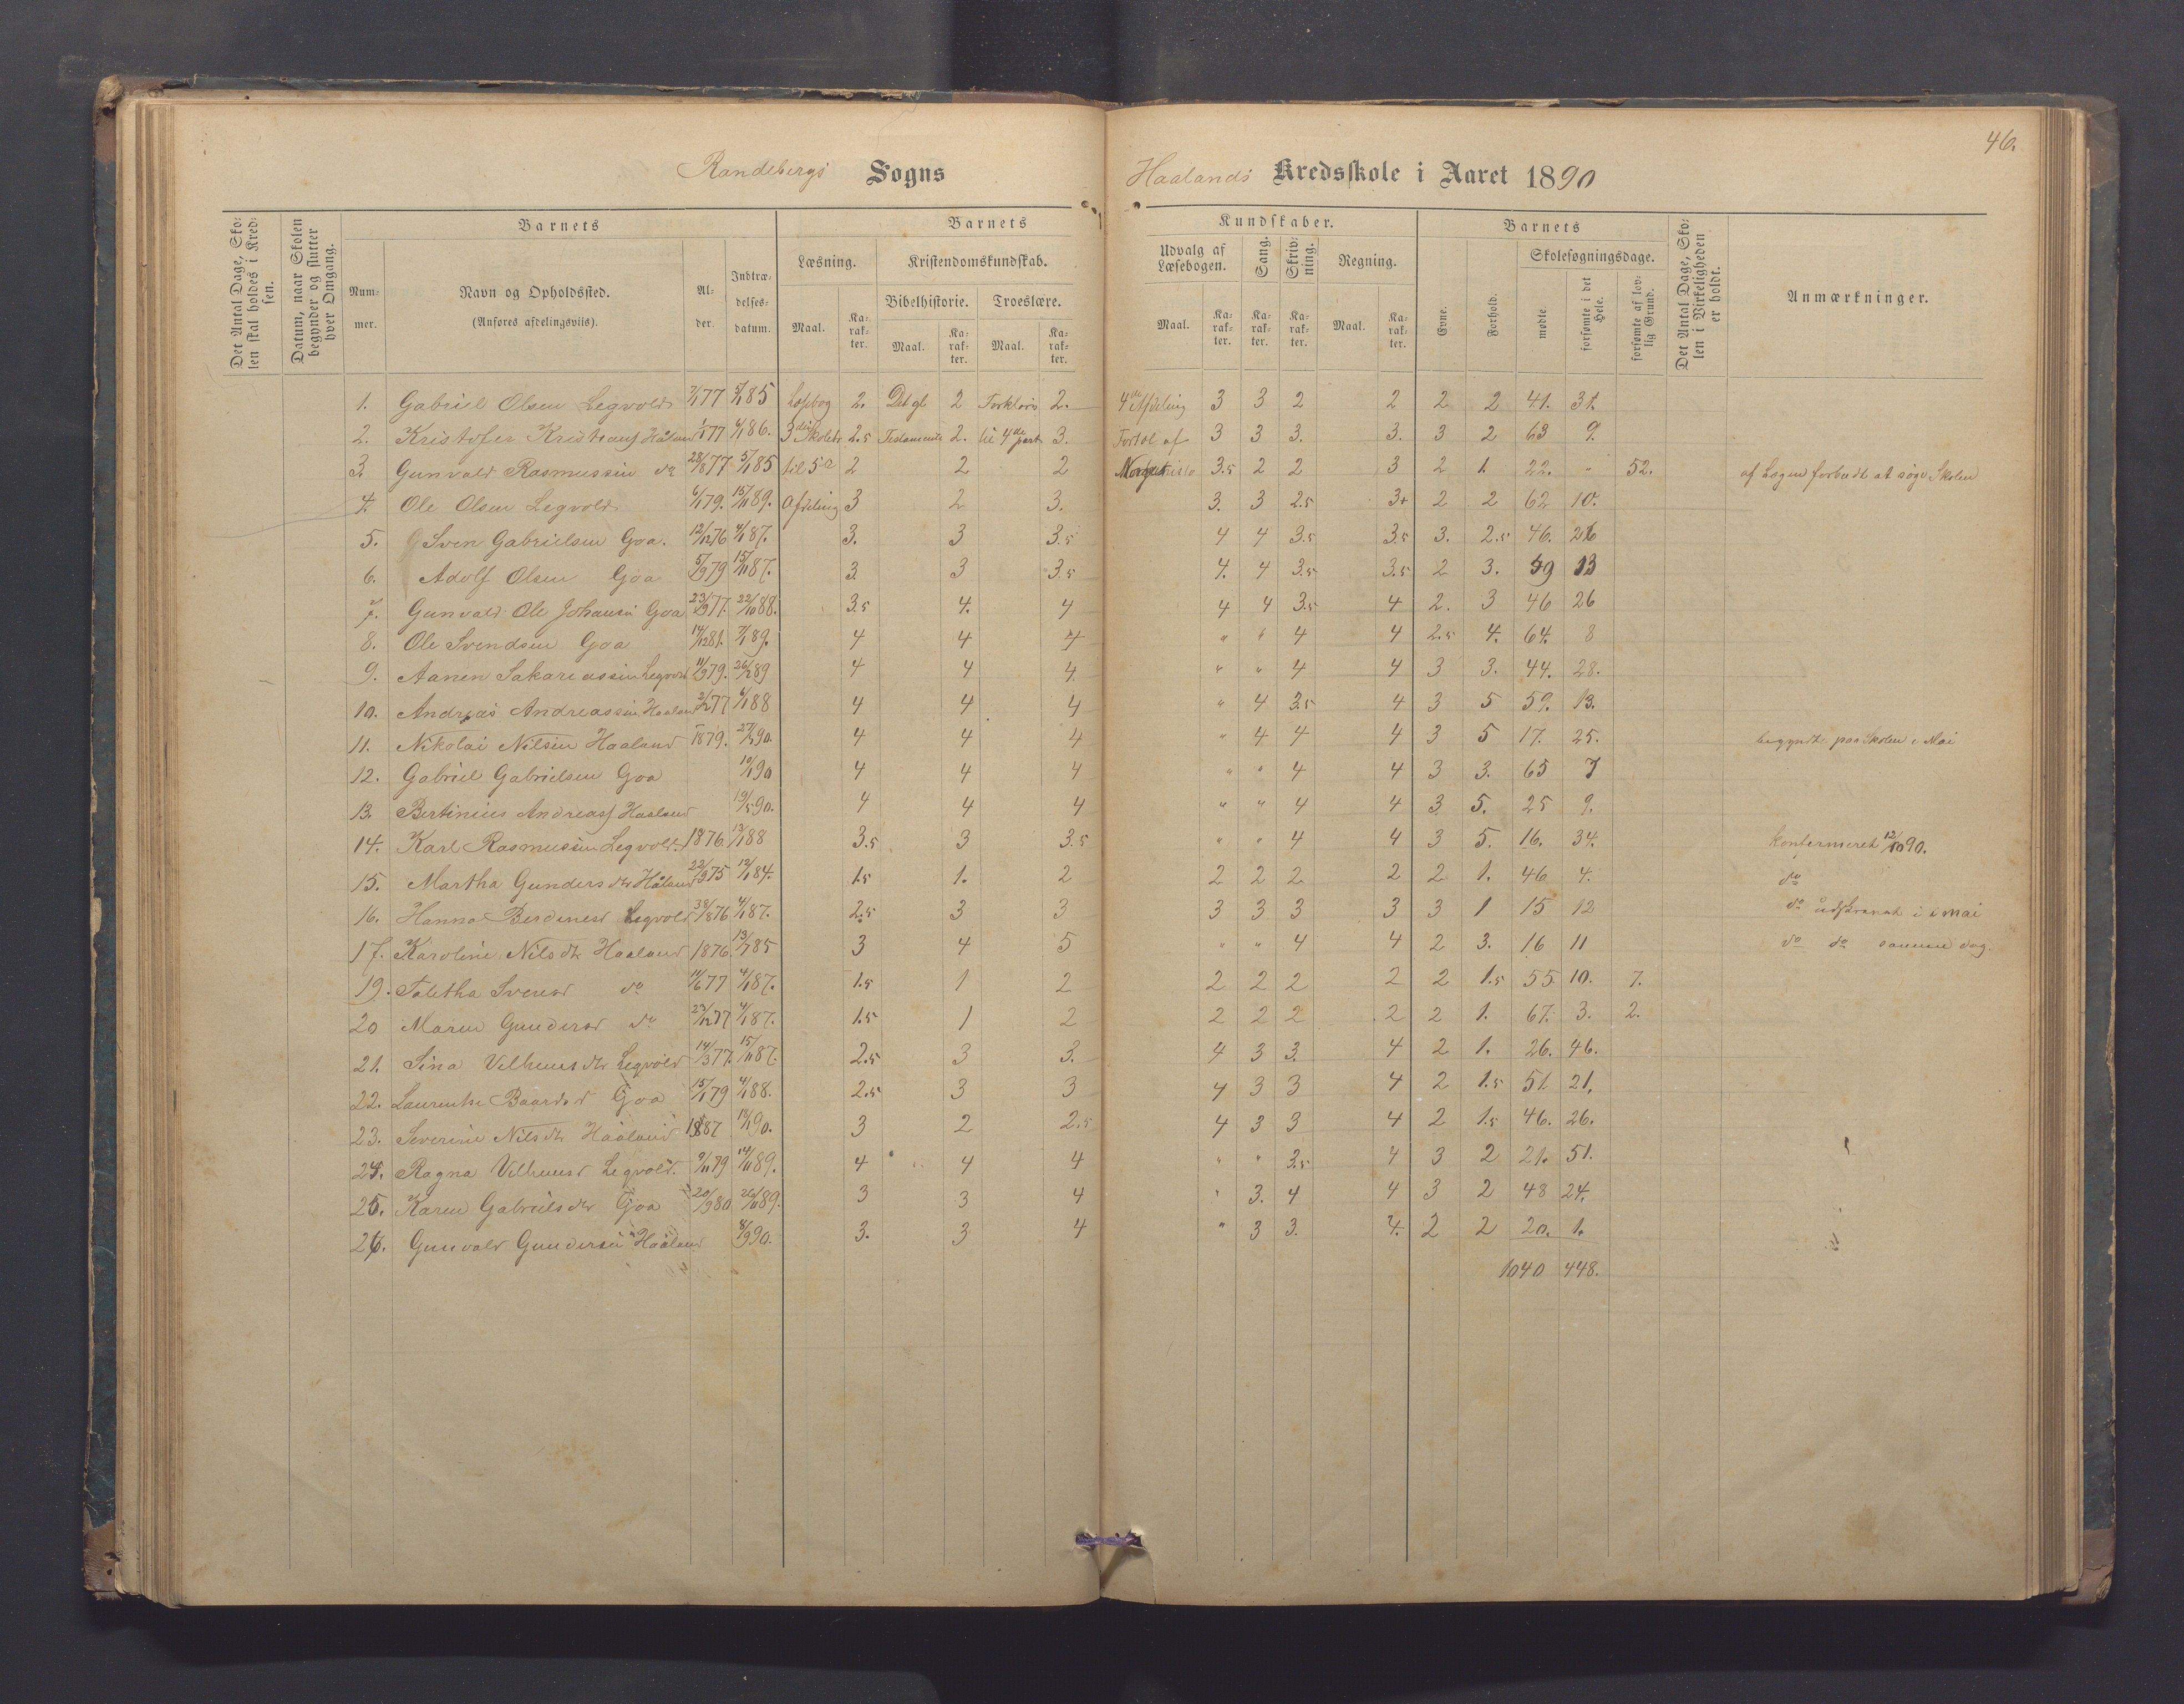 46.
Randebergs Sogns Haalands Kredsskole i Aaret 1890
Det Antal Dage, Skolen skal holdes i Kredsen.
Datum, naar Skolen begynder og slutter hver Omgang.
Barnets
Nummer.
Navn og Opholdssted.
(Anføres afdelingsviis).
Alder.
Indtrædelsesdatum.
Barnets Kundskaber.
Læsning.
Maal.
Karakter.
Kristendomskundskab.
Bibelhistorie.
Maal.
Karakter.
Troeslære.
Maal.
Karakter.
Udvalg af Læsebogen.
Maal.
Karakter.
Sang.
Karakter.
Skrivning.
Karakter.
Regning.
Maal.
Karakter.
Barnets
Evne.
Forhold.
Skolesøgningsdage.
mødte
forsømte i det Hele.
forsømte af lovlig Grund.
Det Antal Dage, Skolen i Virkeligheden er holdt.
Anmærkninger.
1. Gabriel Olsen Legvold 77 85 Læsebog 2. Det gl 2 Forklaris 2. 4de Afdeling 3 3 2 2 2 2 41. 31.
2. Kristofer Håland 77 86. 3die Skoletr 2.5 Testamente 2. til 4de part 3. Fortol af 3 3 3. 3. 3 2 63 9.
3. Gunvald Rasmussen do 28/8 77 5/1 85 til 5te 2 2 2 3.5 2 2 3 2 1. 22. " 52. af Lægen forbudt at søge Skolen
4. Ole Olsen Legvold 6/1 79. 15/11 89. Afdeling 3 2 3. 3. 3 2.5 3+ 2 2 62 10.
5. Sven Gabrielsen Goa. 12/12 76 4/1 87. 3. 3 3.5 4 4 3.5 3.5 3. 2.5 46. 26
6. Adolf Olsen Goa 5/9 79 15/11 87. 3. 3 3.5 4. 4 3.5 3.5 2 3. 59 13
7. Gunvald Ole Johansen Goa 77. 22/10 88. 3.5 4. 4 4 4 3.5 4 2. 3 46 26
8. Ole Svendsen Goa 14/12 81. 7/1 89. 4 4 4 " " 4 4 2.5 4. 64. 8
9. Aanen Sakariassen Legvold 11/9 79. 26/2 89 4 4 4 " " 4 4 3 3. 44. 28.
10. Andreas Andreassen Haaland 77 6/1 88 4 4 4 " 4 3.5 4 3 5 59. 13.
11. Nikolai Nilsen Haaland 1879. 90. 4 4 4 " 4 4 4 3 5 17. 25. begyndte paa Skolen i Mai
12. Gabriel Gabrielsen Goa 10/1 90 4 4 4 " " 4 4 3 3. 65 7
13. Bertinius Andreass Haaland 19/5 90. 4 4 4 " " 4 4 3 5. 25 9.
14. Karl Rasmussen Legvold. 1876 88 3.5 3 3.5 " " 4 4 3 5. 16. 34. konfermeret 12/10 90.
15. Martha Gunders dtr Håland 22/9 75 12/1 84. 1.5 1. 2 2 2 2 2 2 1. 46 4. do
16. Hanna Berdinesd Legvold 76 4/1 87. 2.5 3 3 3 3 3 3 3 1 15 12 do udskrevet i mai
17. Karoline Nils dtr Haaland 1876 13/7 85 3 4 5 " " 4 4 2 3. 16 11 do do samme dag.
19. Taletha Svensd do 11/6 77 4/1 87. 1.5 1 2 2 2 2 2 2 1.5 55 10. 7.
20 Maren Gundersd do 23/12 77 4/1 87. 1.5 1 2 2 2 2 2 2 1. 67. 3. 2.
21. Sina Velhems dtr Legvold 14/3 77. 15/11 87. 2.5 3 3. 4 3 3. 4 2 1. 26. 46.
22. Laurentse Baardsd Goa 15/1 79 4/1 88. 2.5 3 3 4 3 3 4 2 1.5 51. 21.
23. Severine Nils dtr Haaland 90. 3 2 2.5 4 3 3 4 2 1.5 46. 26.
24. Ragna Velhemsd Legvold. 9/11 79 14/11 89. 4 4 4 " " 3.5 4 3 2 21. 51.
25. Karen Gabriels dtr Goa 20/9 80 26/11 89. 3 3 4 " 3. 4 4 3 2 48 24.
26. Gunvald Gundersen Haaland 8/9 90. 3. 3 4 " 3 3. 4. 2 2 20. 1.
1040 448.